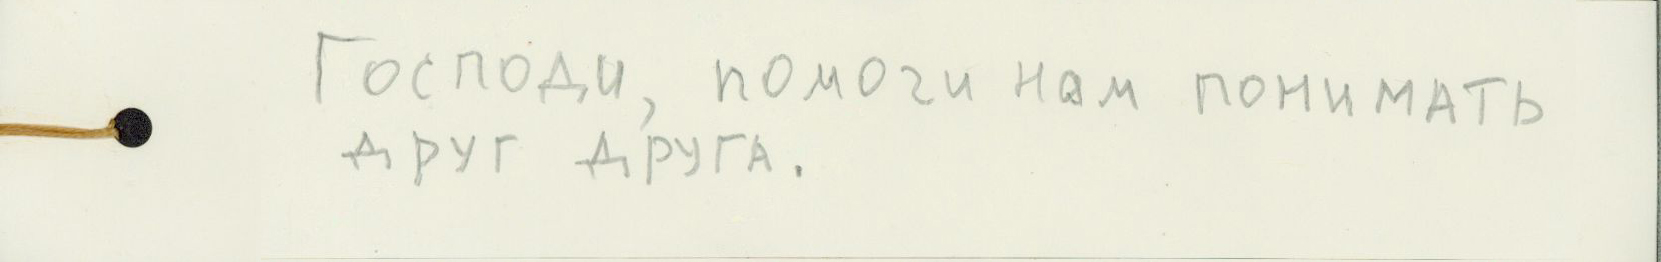 Господи, помоги нам понимать
друг друга.